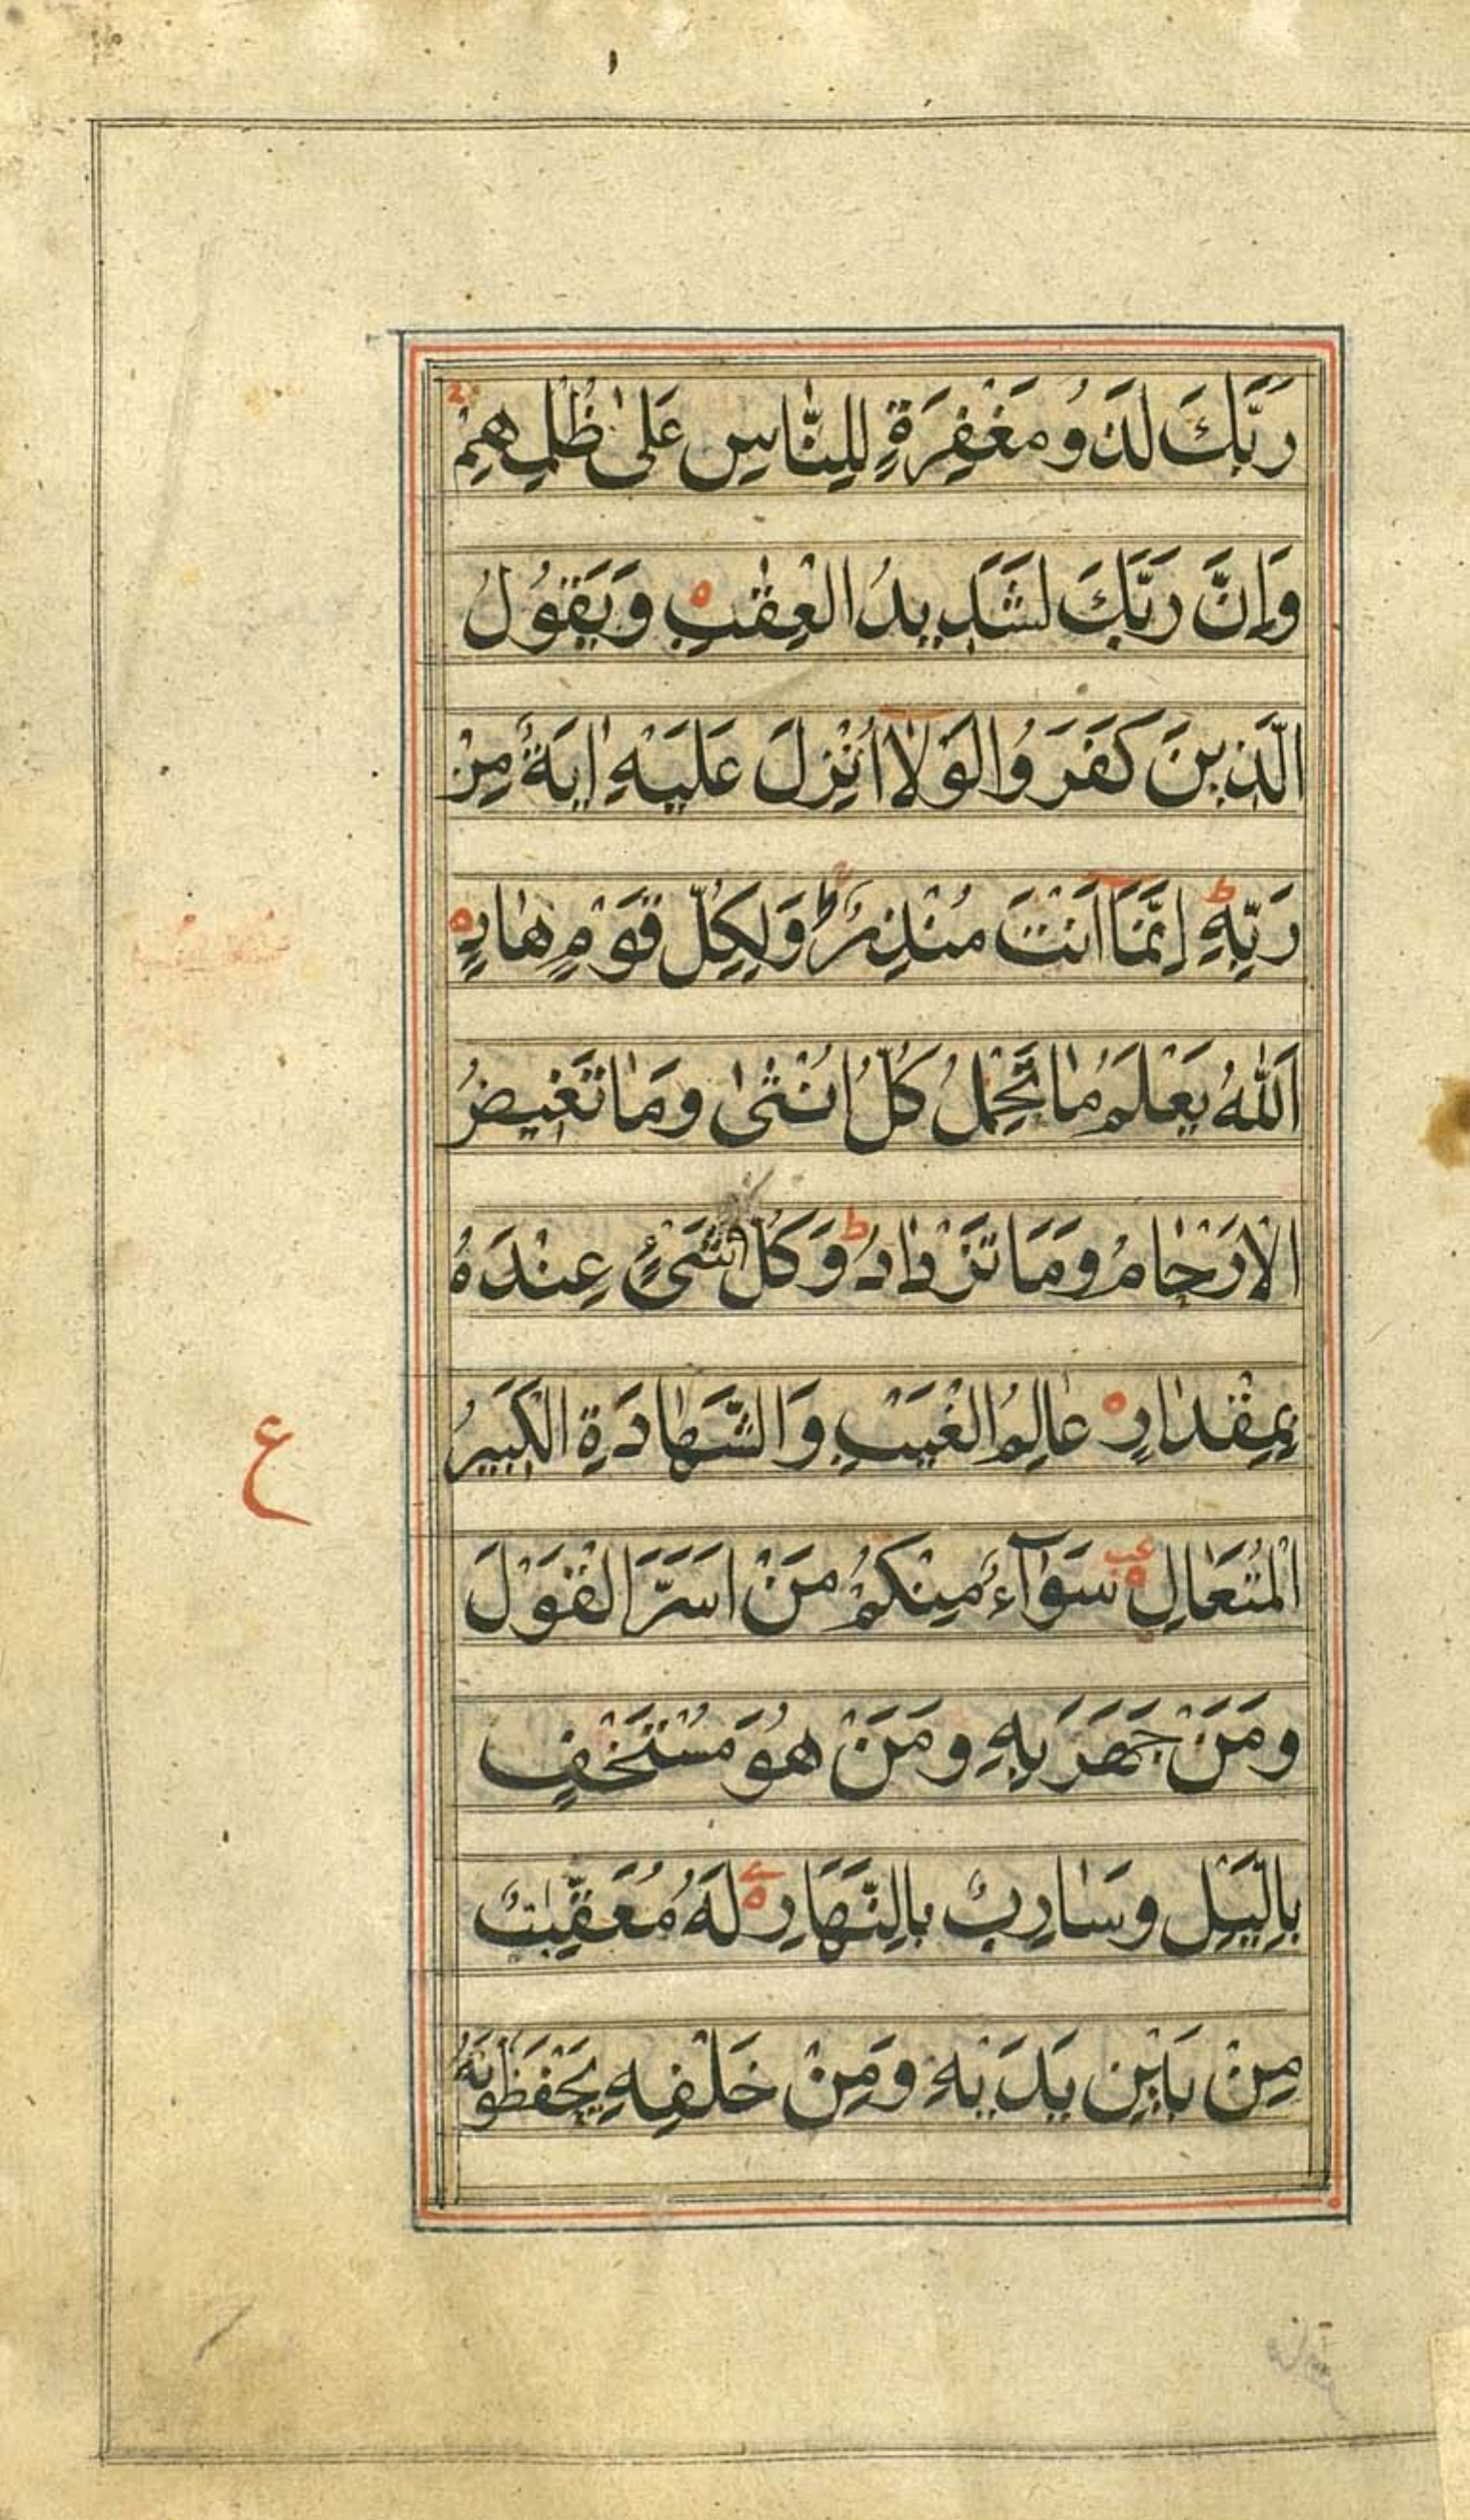 رَبَّكَ لَذُو مَغْفِرَةٍ لِلنَّاسِ عَلٰى ظُلْمِهِمْ
وَإِنَّ رَبَّكَ لَشَدِيدُ الْعِقٰبِ ه وَيَقُولُ
الَّذِينَ كَفَرُوا لَوْلَا أُنْزِلَ عَلَيْهِ اٰيَةٌ مِنْ
رَبِّهِ ط إِنَّمَا أَنْتَ مُنْذِرٌ ط وَلِكُلِّ قَوْمٍ هَادٍ ه
اَللّٰهُ يَعْلَمُ مَا تَحْمِلُ كُلُّ اُنْثٰى وَمَا تَغِيضُ
الْاَرْحَامُ وَمَا تَزْدَادُ ط وَكُلُّ شَىْءٍ عِنْدَهُ
بِمِقْدَارٍ ه عَالِمُ الْغَيْبِ وَالشَّهَادَةِ الْكَبِيرُ
ع
الْمُتَعَالِ ه سَوَآءٌ مِنْكُمْ مَنْ اَسَرَّ الْقَوْلَ
وَمَنْ جَهَرَ بِهِ وَمَنْ هُوَ مُسْتَخْفٍ
بِالَّيْلِ وَسَارِبٌ بِالنَّهَارِ ه لَهُ مُعَقِّبٰتٌ
مِنْ بَيْنِ يَدَيْهِ وَمِنْ خَلْفِهِ يَحْفَظُونَهُ